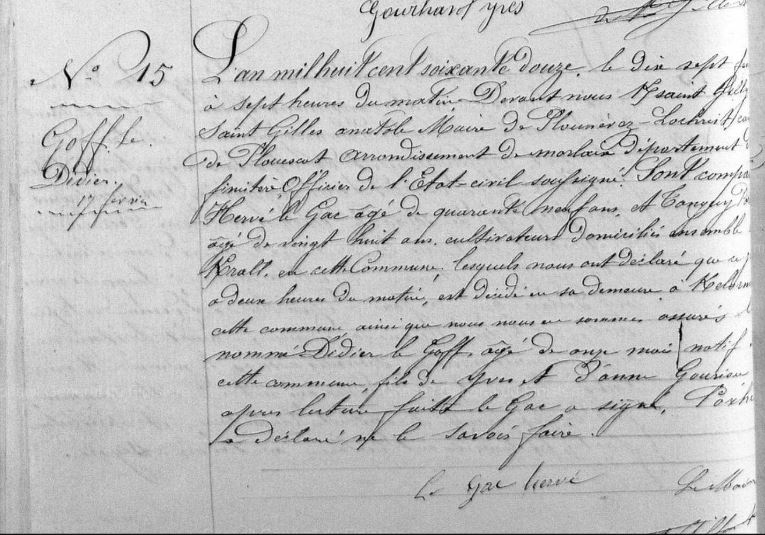 Gourhant yves
N° 15
Goff le
Didier
17 février
L'an mil huit cent soixante douze, le dix sept
à sept heures du matin Devant nous
Saint Gilles anatole Maire de Plounévez-Lochrist
de Plouescat arrondissement de morlaix département
finistère Officier de l'Etat-civil soussigné. Sont
Hervé le Gac âgé de quarante neuf ans, et Tanguy
âgé de vingt huit ans, cultivateurs domiciliés ensemble
en cette Commune, lesquels nous ont déclaré que ce
à deux heures du matin, est décédé en sa demeure à
cette commune ainsi que nous nous en sommes assurés
nommé Didier le Goff, âgé de onze mois natif
cette commune, fils de yves et D'anne
apres lecture faite le Gac a signé,
a déclaré ne le savoir faire.
le gac hervé
Le